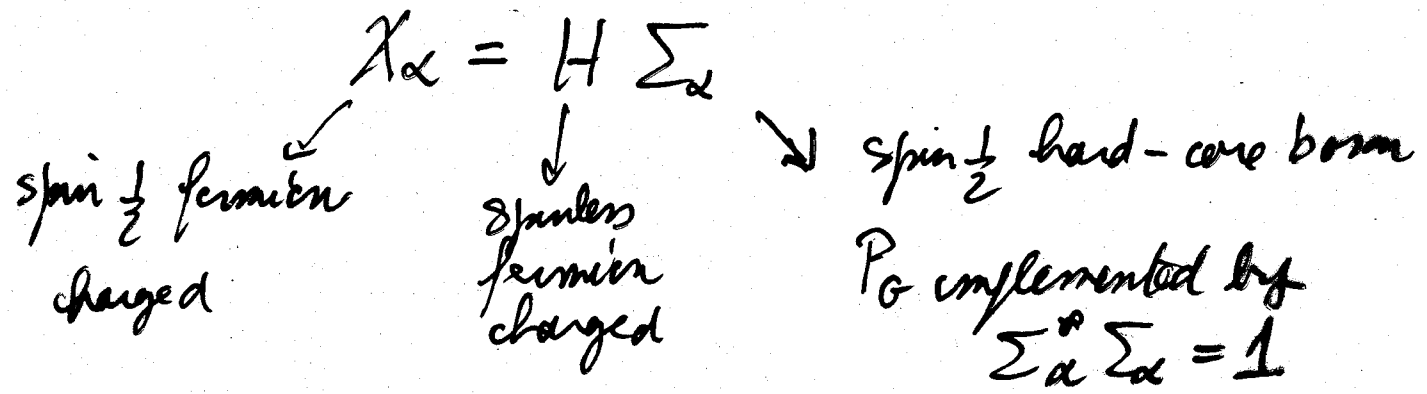 χ_α = H Σ_α
spin 1/2 fermion
charged
spinless
fermion
charged
spin 1/2 hard-core boson
P_G implemented by
Σ*_α Σ_α = 1